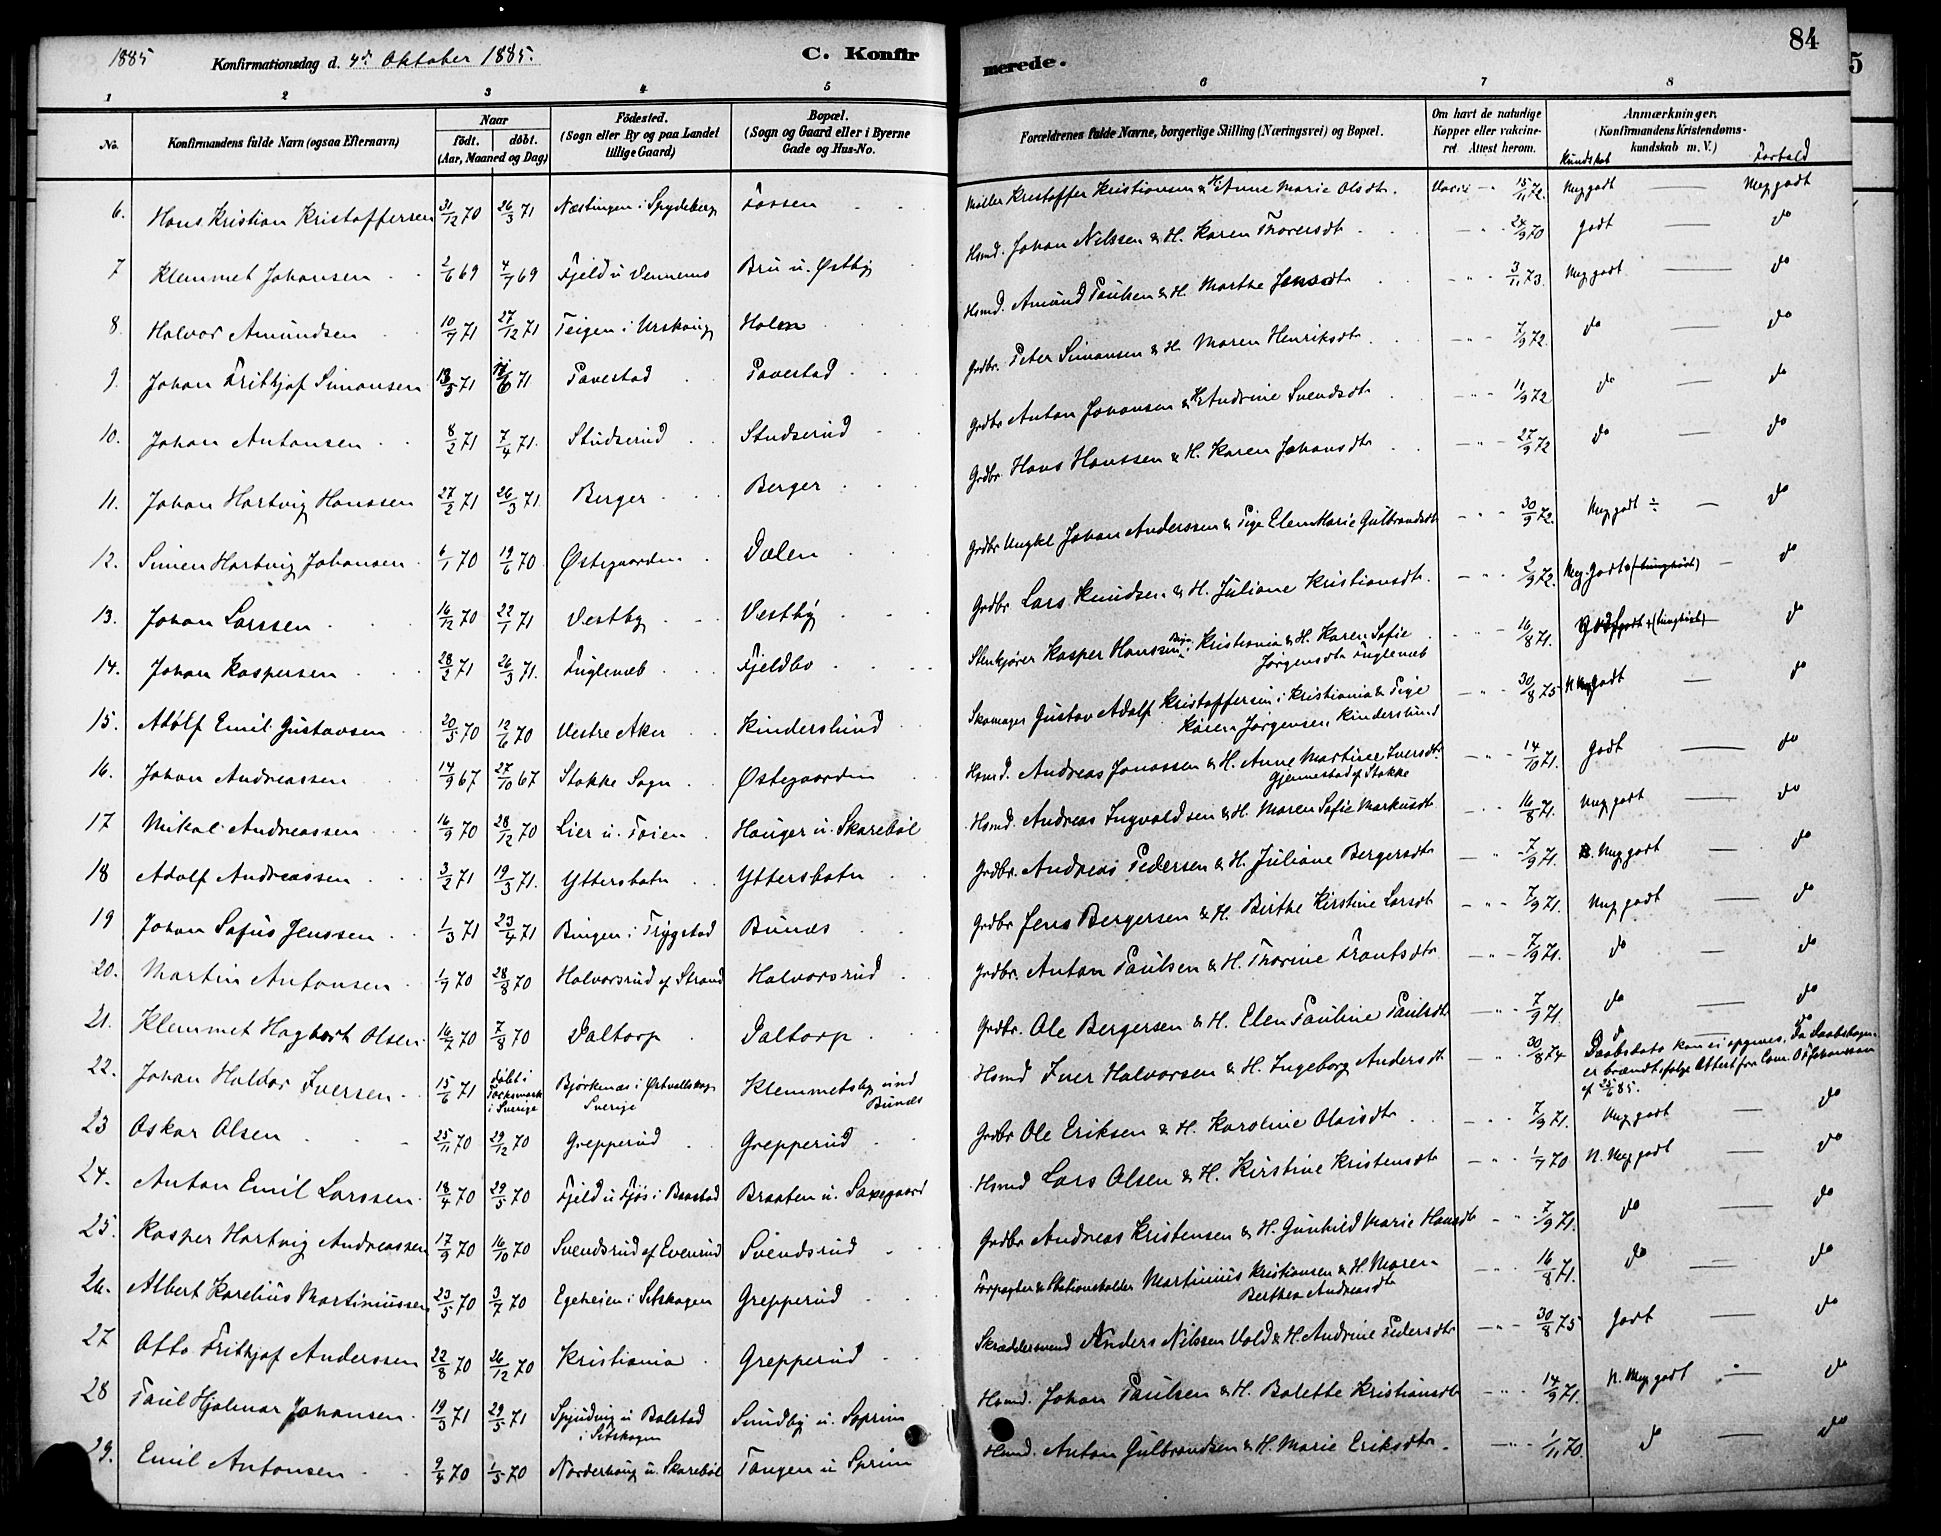 1885 Konfirmationsdag d. 4de Oktober 1885. C. Konfirmerede. 84
1 2 3 4 5 6 7 8
No. Konfirmandens fulde Navn (ogsaa Efternavn) Naar født. døbt. (Aar, Maaned og Dag) Fødested. (Sogn eller By og paa Landet tillige Gaard) Bopæl. (Sogn og Gaard eller i Byerne Gade og Hus-No. Forældrenes fulde Navne, borgerlige Stilling (Næringsvei) og Bopæl. Om havt de naturlige Kopper eller vakcineret Attest herom. Anmærkninger. (Konfirmandens Kristendomskundskab m. V.) Kundskab Forhold
6. Hans Kristian Kristoffersen 31/12 70 26/3 71 Næstingen i Spydeberg Fossen Møller Kristoffer Kristiansen & H. Anne Marie Olsdtr. Vacci 15/11 72. Meg godt Meg godt
7 Klemmet Johansen 2/6 69 4/7 69 Fjeld u. Vennems Bru u. Østby Hsmd. Johan Nilssen & H. Karen Thoresdtr 24/9 70 Godt do
8. Halvor Amundsen 10/9 71 27/12 71 Teigen i Urskoug Holen Hsmd. Amund Paulsen & H. Marthe Jensdtr 3/11 73. Meg godt do
9. Johan Frithjof Simonsen 13/5 71 11/6 71 Tavestad Tavestad Grdbr. Peter Simonsen & H. Maren Henriksdtr. 7/9 72. do do
10. Johan Antonsen 8/2 71 7/4 71. Studserud Studserud Grdbr Anton Johansen & H. Andrine Svendsdtr 11/9 72 do do
11. Johan Hartvig Hanssen 27/2 71 26/3 71. Berger Berger Grdbr. Hans Hanssen & H. Karen Johansdtr 27/9 72 do do
12. Simen Hartvig Johansen 6/1 70 19/6 70. Østegaarden Dalen Grdbr Ungkl Johan Anderssen & Pige Elen Marie Gulbrandsdtr 30/9 72. Meg godt ÷ do
13. Johan Larssen 16/12 70 22/1 71 Vestby Vestby Grdbr. Lars Knudsen & H. Juliane Kristiansdtr. 2/9 72. Meg. Godt (tunghørt) do
14. Johan Kaspersen 28/2 71 26/3 71. Fuglenæb Fjeldbo Stenkjører Kasper Hanssen, Kristiania & H. Karen Sofie Jørgensdtr Fuglenæb 16/8 71. Godt do
15. Adolf Emil Gustavsen 20/5 70 12/6 70 Vestre Aker Kinderslund Skomager Gustav Adolf Kristoffersen i Kristiania & Pige Karen Jørgensen Kinderslund 30/8 75 N. Meg godt do
16. Johan Andreassen 14/9 67 27/10 67 Stokke Sogn Østegaarden Hsmd. Andreas Jonassen & H. Anne Martine Iversdtr. Gjennestad af Stokke 14/10 71. Godt do
17 Mikal Andreassen 16/9 70 28/12 70 Lier u. Toien Hauger u. Skarebøl Hsmd. Andreas Ingvaldsen & H. Maren Sofie Markusdtr 16/8 71. Meg godt do
18 Adolf Andreassen 3/2 71 19/3 71. Ytterskotn Ytterskotn Grdbr. Andreas Pedersen & H. Juliane Bergersdtr 7/9 71. N. Meg godt do
19 Johan Sofus Jenssen 1/3 71 23/4 71 Bingen i Trygstad Bunæs Grdbr Jens Bergersen & H. Birthe Kirstine Larsdtr 7/9 71. Meg godt do
20. Martin Antonsen 1/7 70 28/8 70 Halvorsrud af Strand Halvorsrud Grdbr. Anton Paulsen & H. Thorine Frantsdtr 7/9 71. do do
21. Klemmet Hagbart Olsen 16/7 70 7/8 70 Daltorp Daltorp Grdbr. Ole Bergersen & H. Elen Pauline Paulsdtr 7/9 71. do do
22. Johan Haldor Iversen 15/6 71 døbt i Tocksmark i Sverige Bjørkenæs i Østvallskog Sverige Klemmetsby und Bunæs Hsmd Iver Halvorsen & H. Ingeborg Andersdtr 30/8 74 do do Daabsdato kan ei opgives, da Daabsbogen er brændt, ifølge Attest fra Com. O. Johansson af 25/6 85.
23 Oskar Olsen 25/11 70 29/12 70 Grepperud Grepperud Grdbr Ole Eriksen & H. Karoline Olsisdtr 7/9 71. Meg godt do
24. Anton Emil Larssen 18/4 70 29/5 70 Fjeld u Fjøs i Baastad Braaten u. Saxegaard Hsmd Lars Olsen & H. Kirstine Kristensdtr 1/7 70 N. Meg godt do
25. Kasper Hartvig Andreassen 17/9 70 16/10 70 Svendsrud af Evenrud Svendsrud Grdbr Andreas Kristensen & H. Gunhild Marie Hansdtr 7/9 71. do do
26. Albert Karelius Martiniussen 23/5 70 3/7 70 Egeheien i Setskogen Grepperud Forpagter & Stationsholder Martinius Kristiansen & H. Maren Berthea Andreasdtr 16/8 71. do do
27 Otto Frithjof Anderssen 22/8 70 26/12 70 Kristiania Grepperud Skræddersvend Anders Nilssen Vold & H. Andrine Pedersdtr 30/8 75 Godt do
28 Paul Hjalmar Johansen. 19/3 71 29/5 71 Spjuding u Bolstad i Setskogen Sundby u. Soprim Hsmd. Johan Paulsen & H. Bolette Kristiansdtr 14/9 71. N. Meg godt do
29. Emil Antonsen 9/4 70 1/5 70 Norderhaug u. Skarebøl Tangen u Sprim Hsmd. Anton Gulbrandsen & H. Marie Eriksdtr. 1/11 70. do do